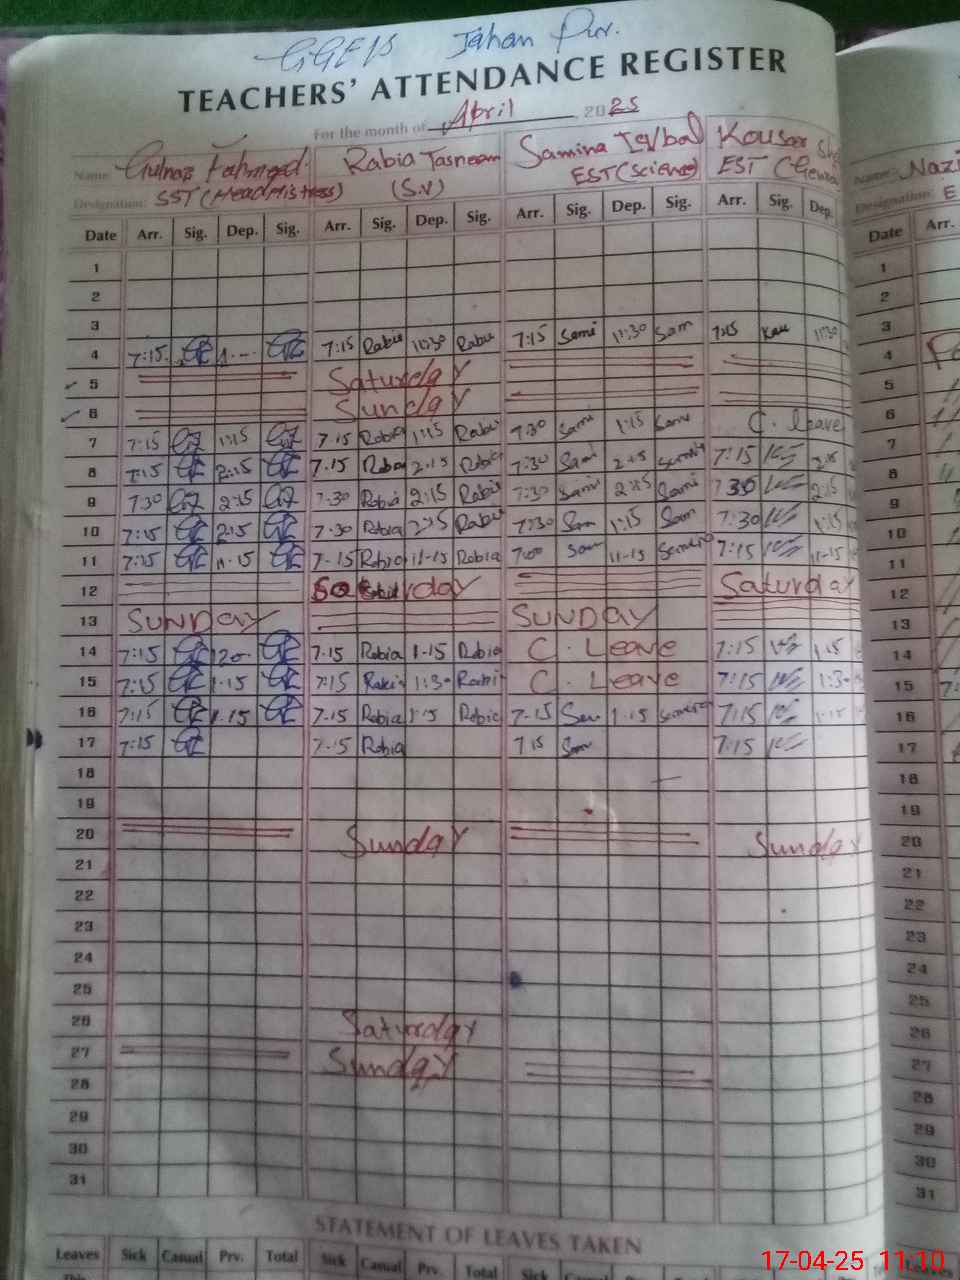 GGEIS Jahan Pur.
TEACHERS' ATTENDANCE REGISTER
For the month of April 2025
Name: Gulnaz Rabia Tasneem Samina Iqbal Kousar Name: Nazi
Designation: SST (HeadMistress) (S.V) EST (Science) EST Designation: E
Date Arr. Sig. Dep. Sig. Arr. Sig. Dep. Sig. Arr. Sig. Dep. Sig. Arr. Sig. Dep. Date Arr.
1 1
2 2
3 3
4 7:15 7:15 11:30 7:15 Sami 11:30 Sam 7:15 Kau 11:30 4
5 Saturday 5
6 Sunday 6
7 7:15 1:15 7.15 Rabia 1:15 7:30 Sami 1:15 C. leave 7
8 7:15 2:15 7.15 2:15 7:30 Sami 2:15 7:15 8
9 7:30 2:15 7:30 Rabia 2:15 7:30 2:15 Sami 7:30 2:15 9
10 7:15 2:15 7:30 Rabia 2:15 7:30 Sam 1:15 Sam 7:30 1:15 10
11 7:15 11-15 7-15 Rabia 11-15 Rabia 7:00 Sam 11-15 7:15 11-15 11
12 Saturday Saturday 12
13 SUNDAY SUNDAY 13
14 7:15 7.15 Rabia 1-15 Rabia C. Leave 7:15 1.15 14
15 7:15 1-15 7:15 1:30 C. Leave 7:15 1:30 15
16 7:15 1.15 7-15 Rabia 1:15 Rabia 7-15 1-15 7:15 1-15 16
17 7:15 7-15 Rabia 7 15 Sam 7:15 17
18 18
19 19
20 Sunday Sunday 20
21 21
22 22
23 23
24 24
25 25
26 Saturday 26
27 Sunday 27
28 28
29 29
30 30
31 31
STATEMENT OF LEAVES TAKEN
Leaves Sick Casual Prv. Total Sick Casual Prv. Total Sick Casual Leaves
This
17-04-25 11:10